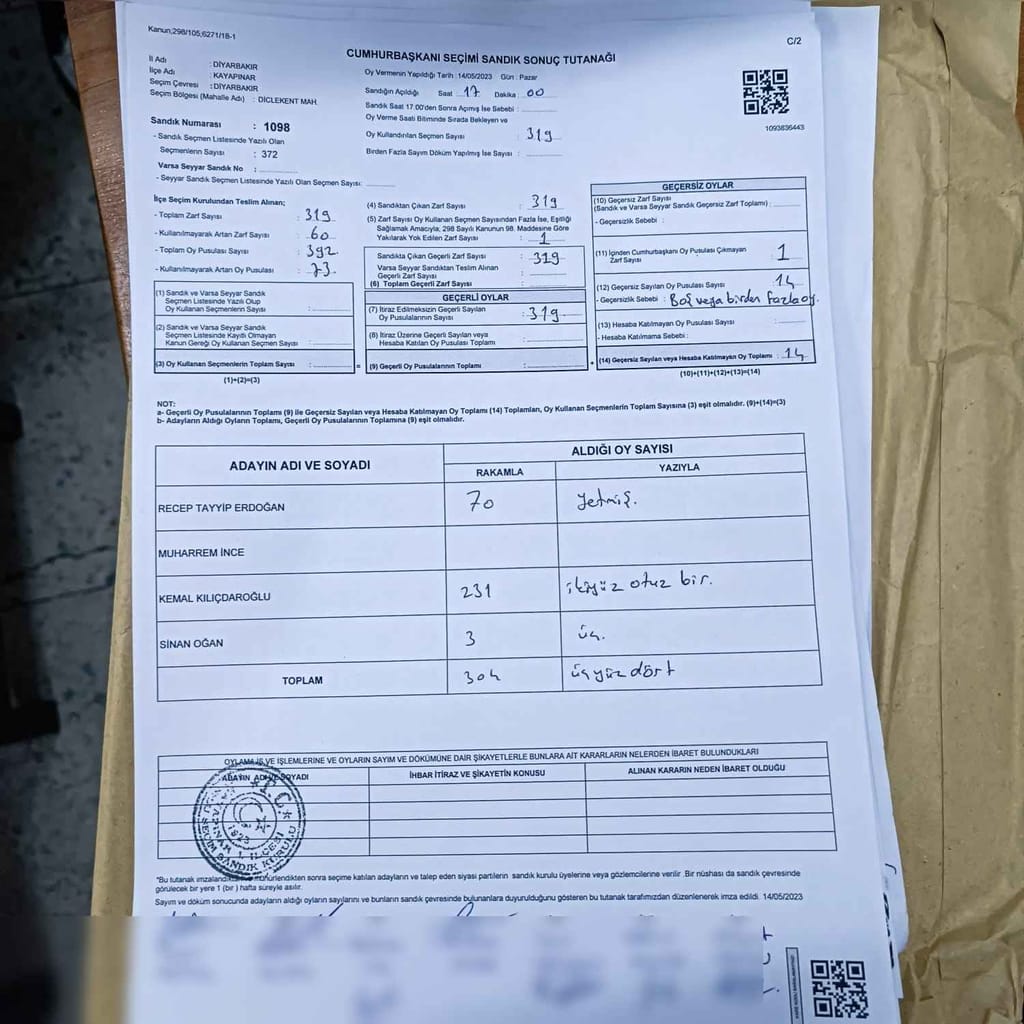 Kanun;298/105,6271/18-1
C/2
CUMHURBAŞKANI SEÇİMİ SANDIK SONUÇ TUTANAĞI
İl Adı : DİYARBAKIR
İlçe Adı : KAYAPINAR
Seçim Çevresi : DİYARBAKIR
Seçim Bölgesi (Mahalle Adı) : DİCLEKENT MAH.
Oy Vermenin Yapıldığı Tarih :14/05/2023 Gün : Pazar
Sandığın Açıldığı Saat 17 Dakika 00
Sandık Saat 17.00'den Sonra Açımış İse Sebebi :
Oy Verme Saati Bitiminde Sırada Bekleyen ve
Oy Kullandırılan Seçmen Sayısı : 319
Birden Fazla Sayım Döküm Yapılmış İse Sayısı :
1093836443
Sandık Numarası : 1098
- Sandık Seçmen Listesinde Yazılı Olan
Seçmenlerin Sayısı : 372
Varsa Seyyar Sandık No :
- Seyyar Sandık Seçmen Listesinde Yazılı Olan Seçmen Sayısı:
İlçe Seçim Kurulundan Teslim Alınan;
- Toplam Zarf Sayısı : 319
- Kullanılmayarak Artan Zarf Sayısı : 60
- Toplam Oy Pusulası Sayısı : 392
- Kullanılmayarak Artan Oy Pusulası : 73
(1) Sandık ve Varsa Seyyar Sandık
Seçmen Listesinde Yazılı Olup
Oy Kullanan Seçmenlerin Sayısı :
(2) Sandık ve Varsa Seyyar Sandık
Seçmen Listesinde Kayıtlı Olmayan
Kanun Gereği Oy Kullanan Seçmen Sayısı :
(3) Oy Kullanan Seçmenlerin Toplam Sayısı :
(1)+(2)=(3)
(4) Sandıktan Çıkan Zarf Sayısı : 319
(5) Zarf Sayısı Oy Kullanan Seçmen Sayısından Fazla İse, Eşitliği
Sağlamak Amacıyla, 298 Sayılı Kanunun 98. Maddesine Göre
Yakılarak Yok Edilen Zarf Sayısı : 1
Sandıkta Çıkan Geçerli Zarf Sayısı : 319
Varsa Seyyar Sandıktan Teslim Alınan
Geçerli Zarf Sayısı :
(6) Toplam Geçerli Zarf Sayısı :
GEÇERLİ OYLAR
(7) İtiraz Edilmeksizin Geçerli Sayılan
Oy Pusulalarının Sayısı : 319
(8) İtiraz Üzerine Geçerli Sayılan veya
Hesaba Katılan Oy Pusulası Toplamı :
= (9) Geçerli Oy Pusulalarının Toplamı :
GEÇERSİZ OYLAR
(10) Geçersiz Zarf Sayısı
(Sandık ve Varsa Seyyar Sandık Geçersiz Zarf Toplamı) :
- Geçersizlik Sebebi :
(11) İçinden Cumhurbaşkanı Oy Pusulası Çıkmayan
Zarf Sayısı : 1
(12) Geçersiz Sayılan Oy Pusulası Sayısı : 14
- Geçersizlik Sebebi : Boş veya birden fazla oy.
(13) Hesaba Katılmayan Oy Pusulası Sayısı :
- Hesaba Katılmama Sebebi :
+ (14) Geçersiz Sayılan veya Hesaba Katılmayan Oy Toplamı : 14
(10)+(11)+(12)+(13)=(14)
NOT:
a- Geçerli Oy Pusulalarının Toplamı (9) ile Geçersiz Sayılan veya Hesaba Katılmayan Oy Toplamı (14) Toplamları, Oy Kullanan Seçmenlerin Toplam Sayısına (3) eşit olmalıdır. (9)+(14)=(3)
b- Adayların Aldığı Oyların Toplamı, Geçerli Oy Pusulalarının Toplamına (9) eşit olmalıdır.
ADAYIN ADI VE SOYADI
ALDIĞI OY SAYISI
RAKAMLA YAZIYLA
RECEP TAYYİP ERDOĞAN 70 Yetmiş.
MUHARREM İNCE
KEMAL KILIÇDAROĞLU 231 ikiyüz otuz bir.
SİNAN OĞAN 3 üç.
TOPLAM 304 üçyüz dört
OYLAMA İŞ VE İŞLEMLERİNE VE OYLARIN SAYIM VE DÖKÜMÜNE DAİR ŞİKAYETLERLE BUNLARA AİT KARARLARIN NELERDEN İBARET BULUNDUKLARI
ADAYIN ADI VE SOYADI İHBAR İTİRAZ VE ŞİKAYETİN KONUSU ALINAN KARARIN NEDEN İBARET OLDUĞU
T.C.
1923
KAYAPINAR 1. İLÇESİ
SANDIK KURULU
*Bu tutanak imzalandıktan ve mühürlendikten sonra seçime katılan adayların ve talep eden siyasi partilerin sandık kurulu üyelerine veya gözlemcilerine verilir .Bir nüshası da sandık çevresinde
görülecek bir yere 1 (bir ) hafta süreyle asılır.
Sayım ve döküm sonucunda adayların aldığı oyların sayılarını ve bunların sandık çevresinde bulunanlara duyurulduğunu gösteren bu tutanak tarafımızdan düzenlenerek imza edildi. 14/05/2023